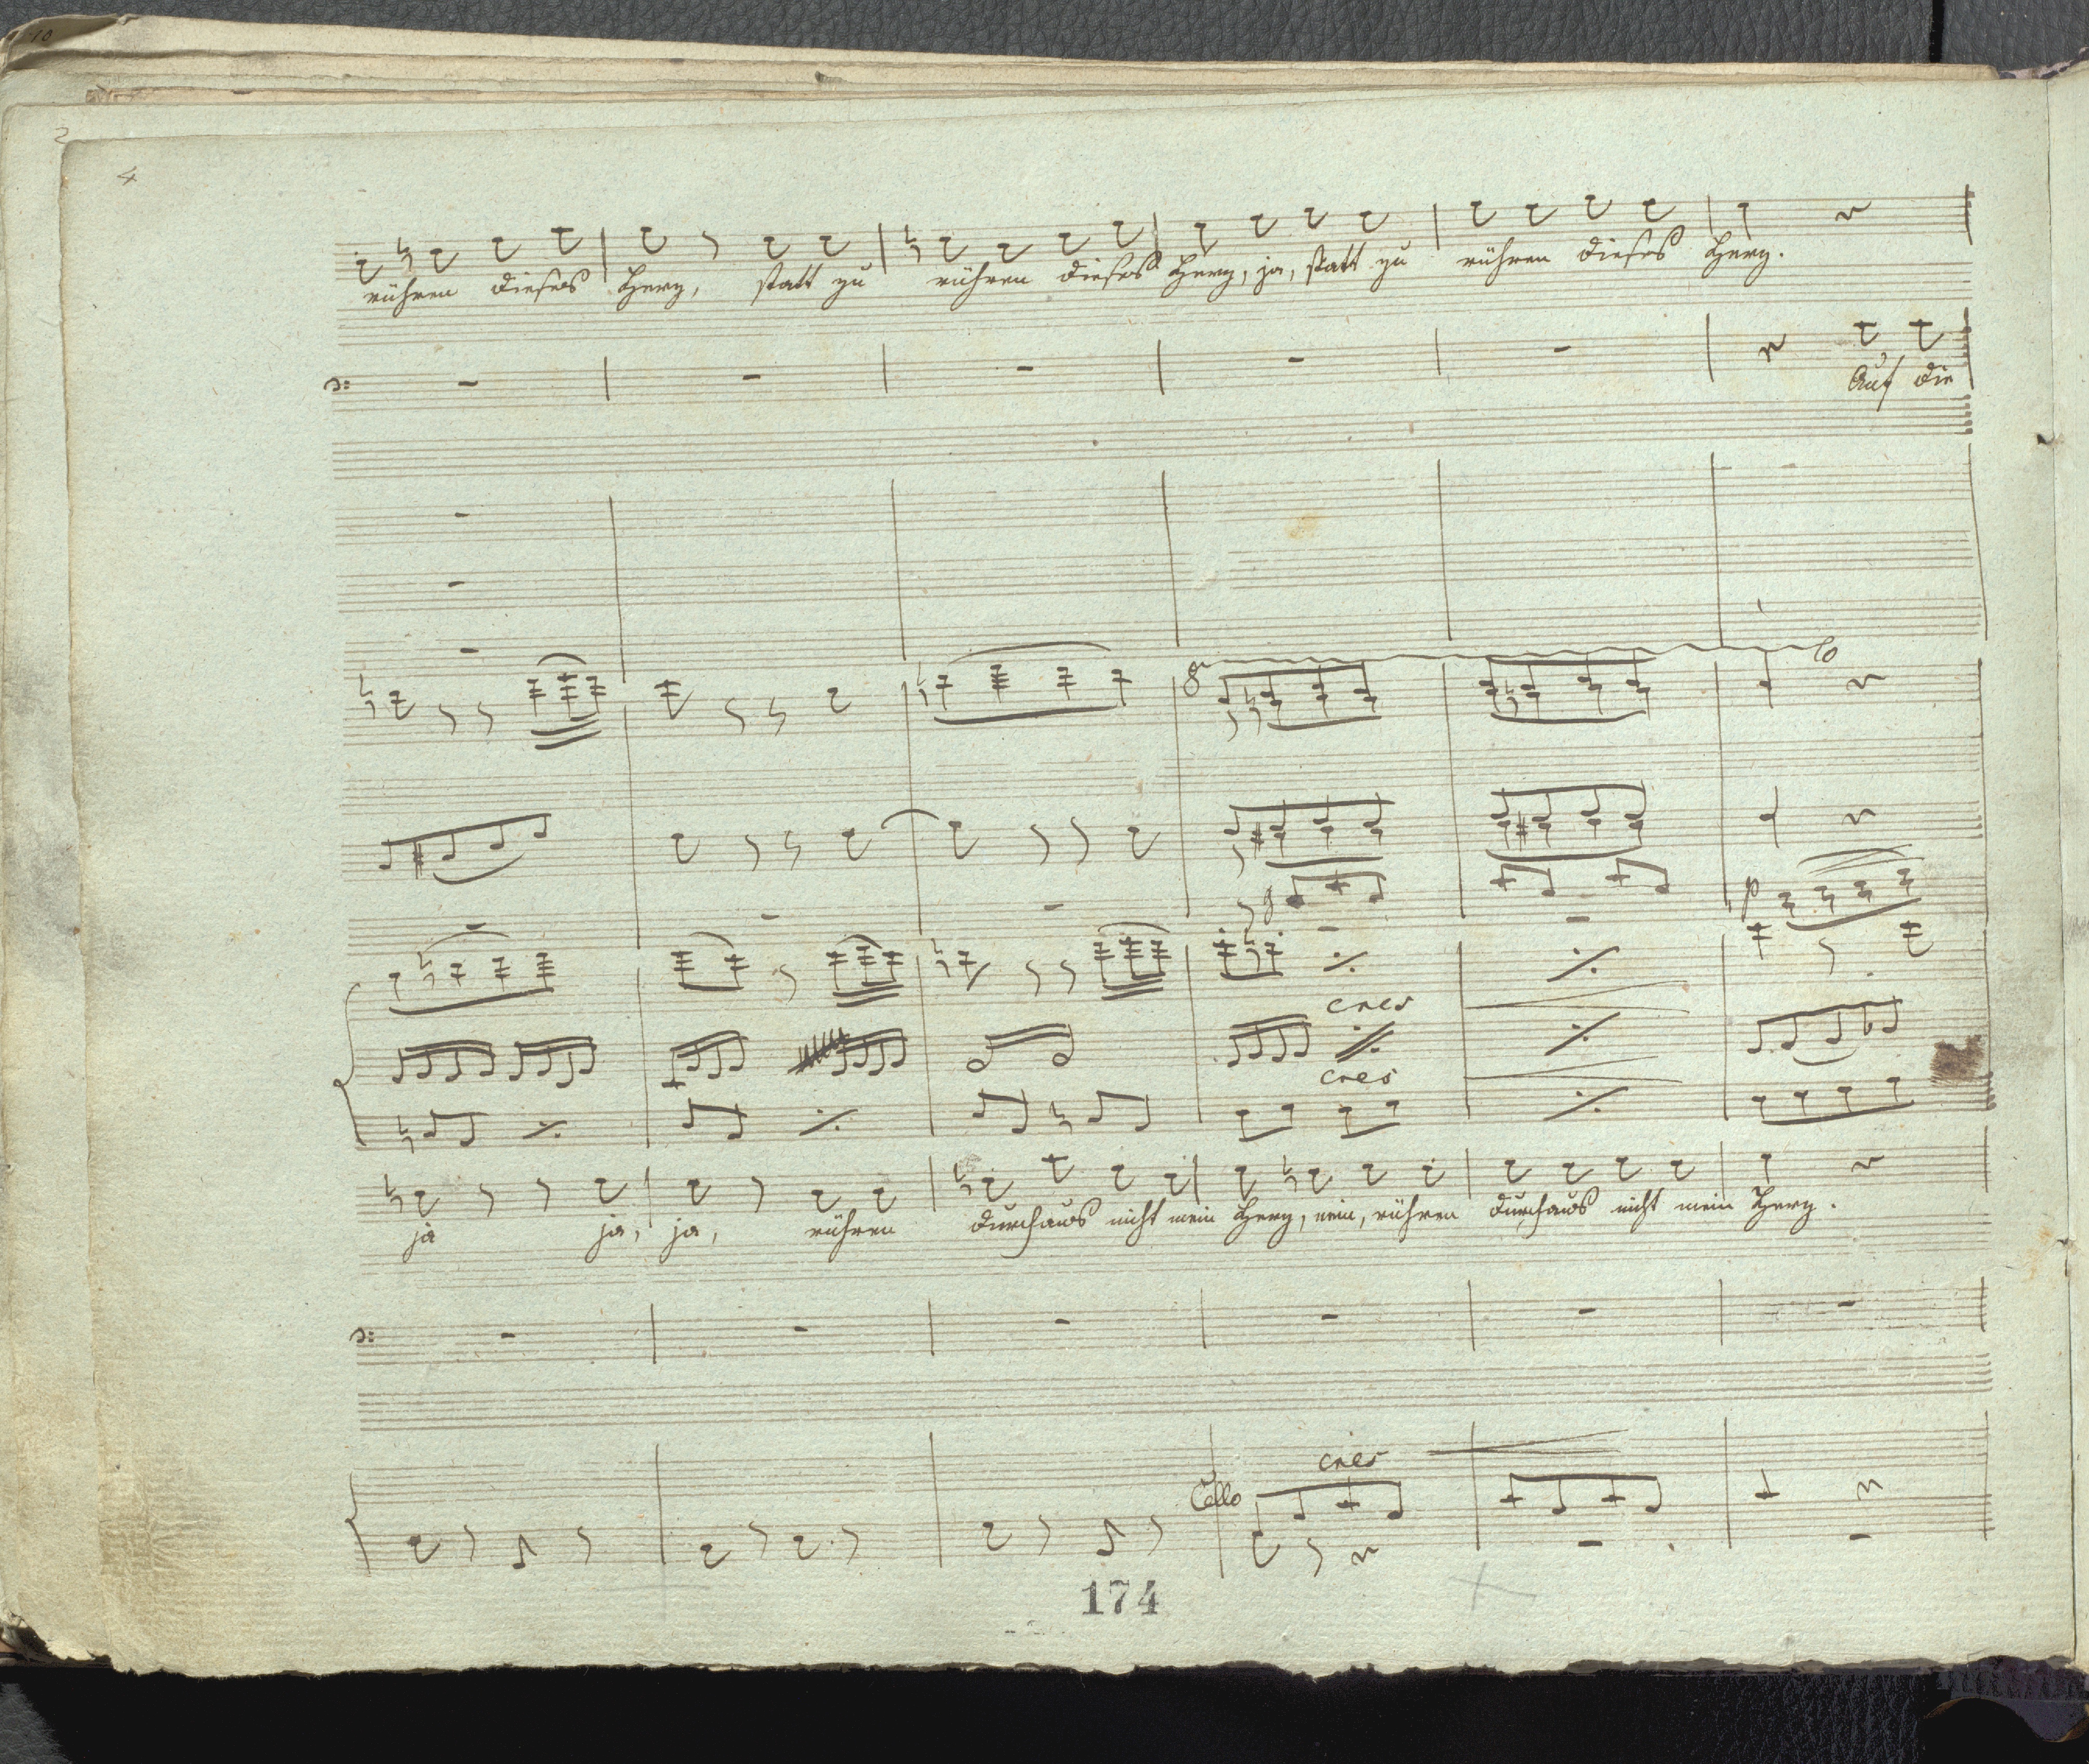 10
2
4
rühren dieses Herz, statt zu rühren dieses Herz, ja, statt zu rühren dieses Herz.
Auf die
8
p
cres
cres
ja ja, ja, rühren durchaus nicht mein Herz, nein, rühren durchaus nicht mein Herz.
cres
Cello
174